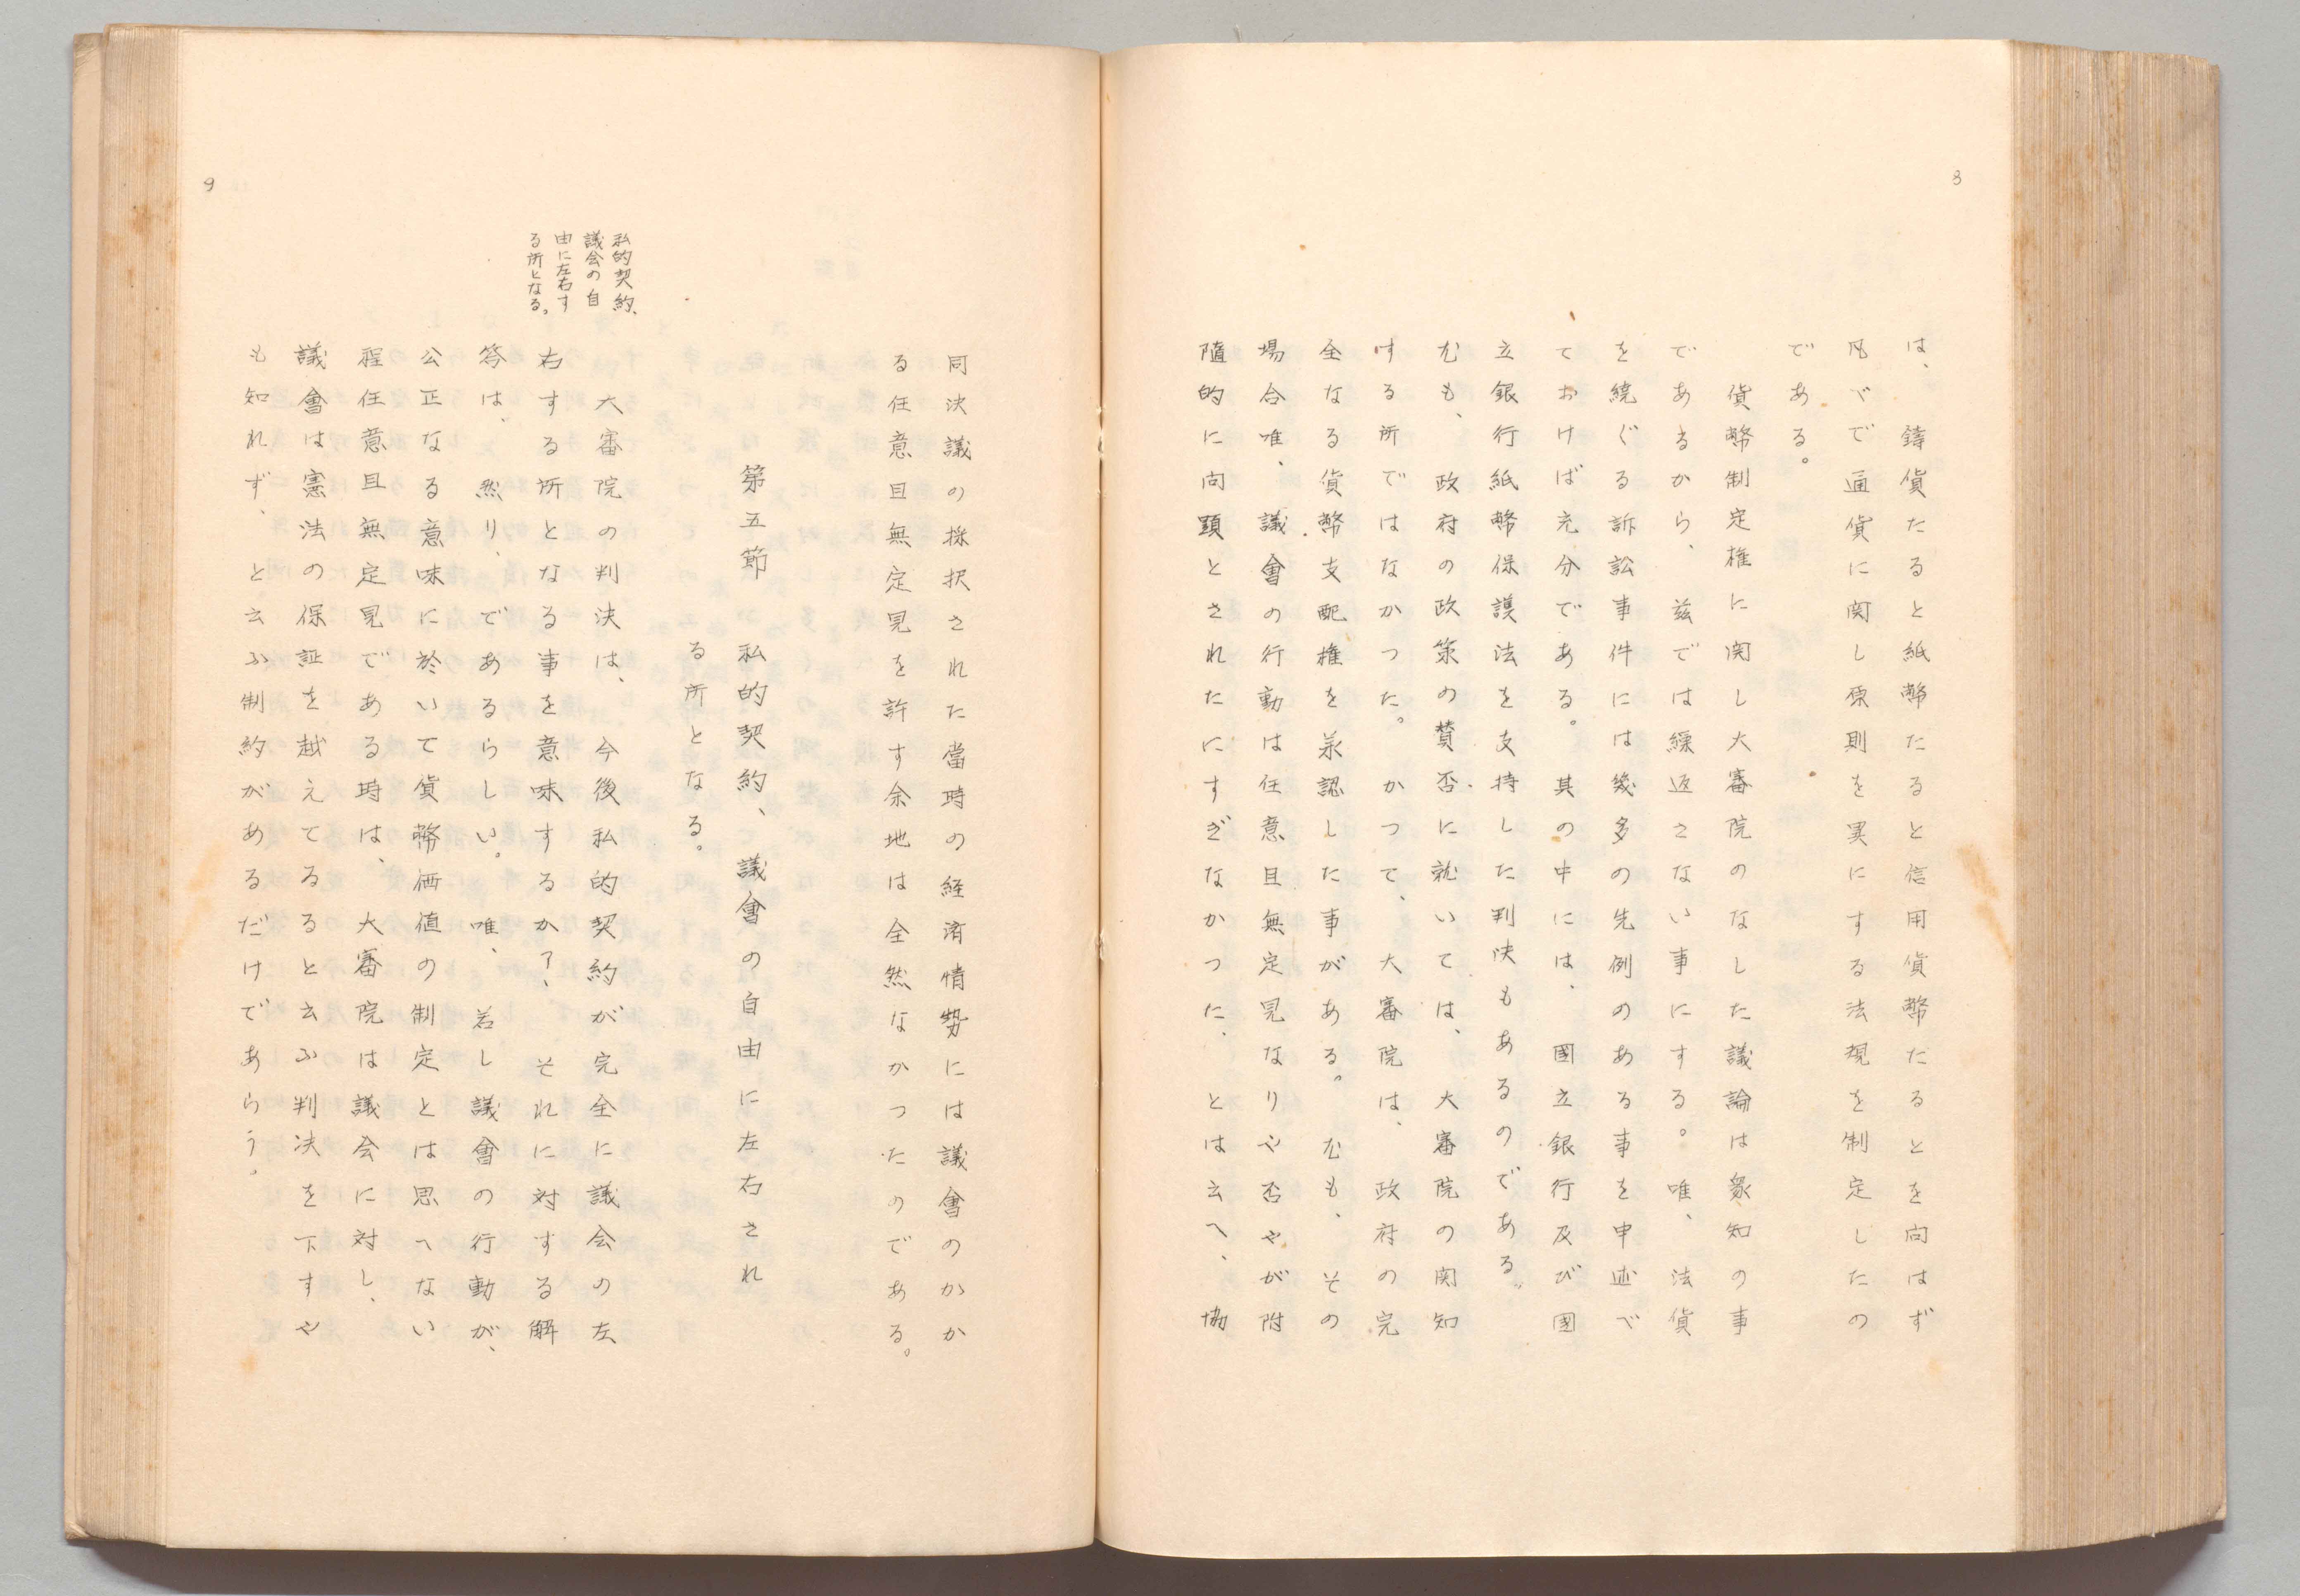 8
は、鋳貨たると紙幣たると信用貨幣たるとを向はず
凡べで通貨に関し原則を異にする法規を制定したの
である。
貨幣制定権に関し大審院のなした議論は衆知の事
であるから、茲では繰返さない事にする。唯、法貨
を繞ぐる訴訟事件には幾多の先例のある事を申述べ
ておけば充分である。其の中には、國立銀行及び國
立銀行紙幣保護法を支持した判决もあるのである。
尤も、政府の政策の賛否に就いては、大審院の関知
する所ではなかつた。かつて、大審院は、政府の完
全なる貨幣支配権を承認した事がある。尤も、その
場合唯、議會の行動は任意且無定見なりや否やが附
隨的に向題とされたにすぎなかつた、とは云へ、協
9
同決議の採択された當時の経済情勢には議會のかか
る任意且無定見を許す余地は全然なかつたのである。
第五節 私的契約、議會の自由に左右され
る所となる。
私的契約、
議会の自
由に左右す
る所となる。
大審院の判決は、今後私的契約が完全に議会の左
右する所となる事を意味するか?、それに対する解
答は、然り、であるらしい。唯、若し議會の行動が、
公正なる意味に於いて貨幣価値の制定とは思へない
程任意且無定見である時は、大審院は議会に対し、
議會は憲法の保証を越えてるると云ふ判決を下すや
も知れず、と云ふ制約があるだけであらう。